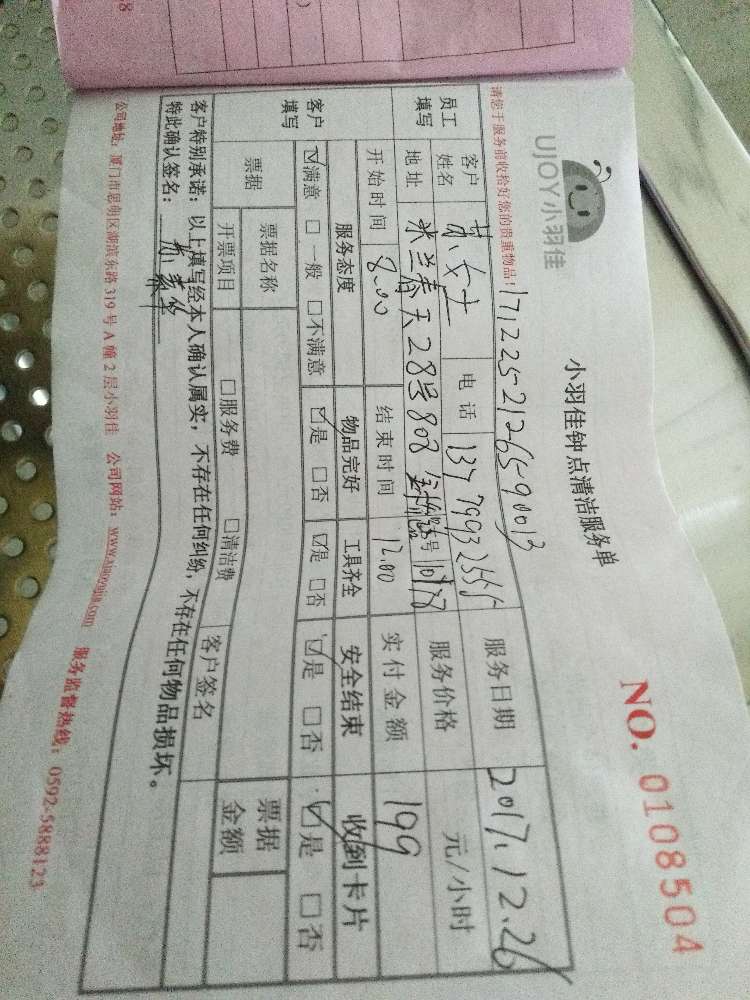 UJOY小羽佳
小羽佳钟点清洁服务单
NO. 0108504
请您于服务前收拾好您的贵重物品!
1712252126590013
员工填写
客户姓名 女士 电话 服务日期 2017.12.26
地址 米兰春天28号808 号 服务价格 元/小时
开始时间 8.00 结束时间 12.00 实付金额 199
客户填写
服务态度 物品完好 工具齐全 安全结束 收到卡片
☑满意 □一般 □不满意 ☑是 □否 ☑是 □否 ☑是 □否 ☑是 □否
票据 票据名称 票据金额
开票项目 □服务费 □清洁费
客户签名
客户特别承诺:以上填写经本人确认属实,不存在任何纠纷,不存在任何物品损坏。
特此确认签名:
公司地址:厦门市思明区湖滨东路319号A幢2层小羽佳 公司网站:www.xiaoyujia.com 服务监督热线:0592-5888123